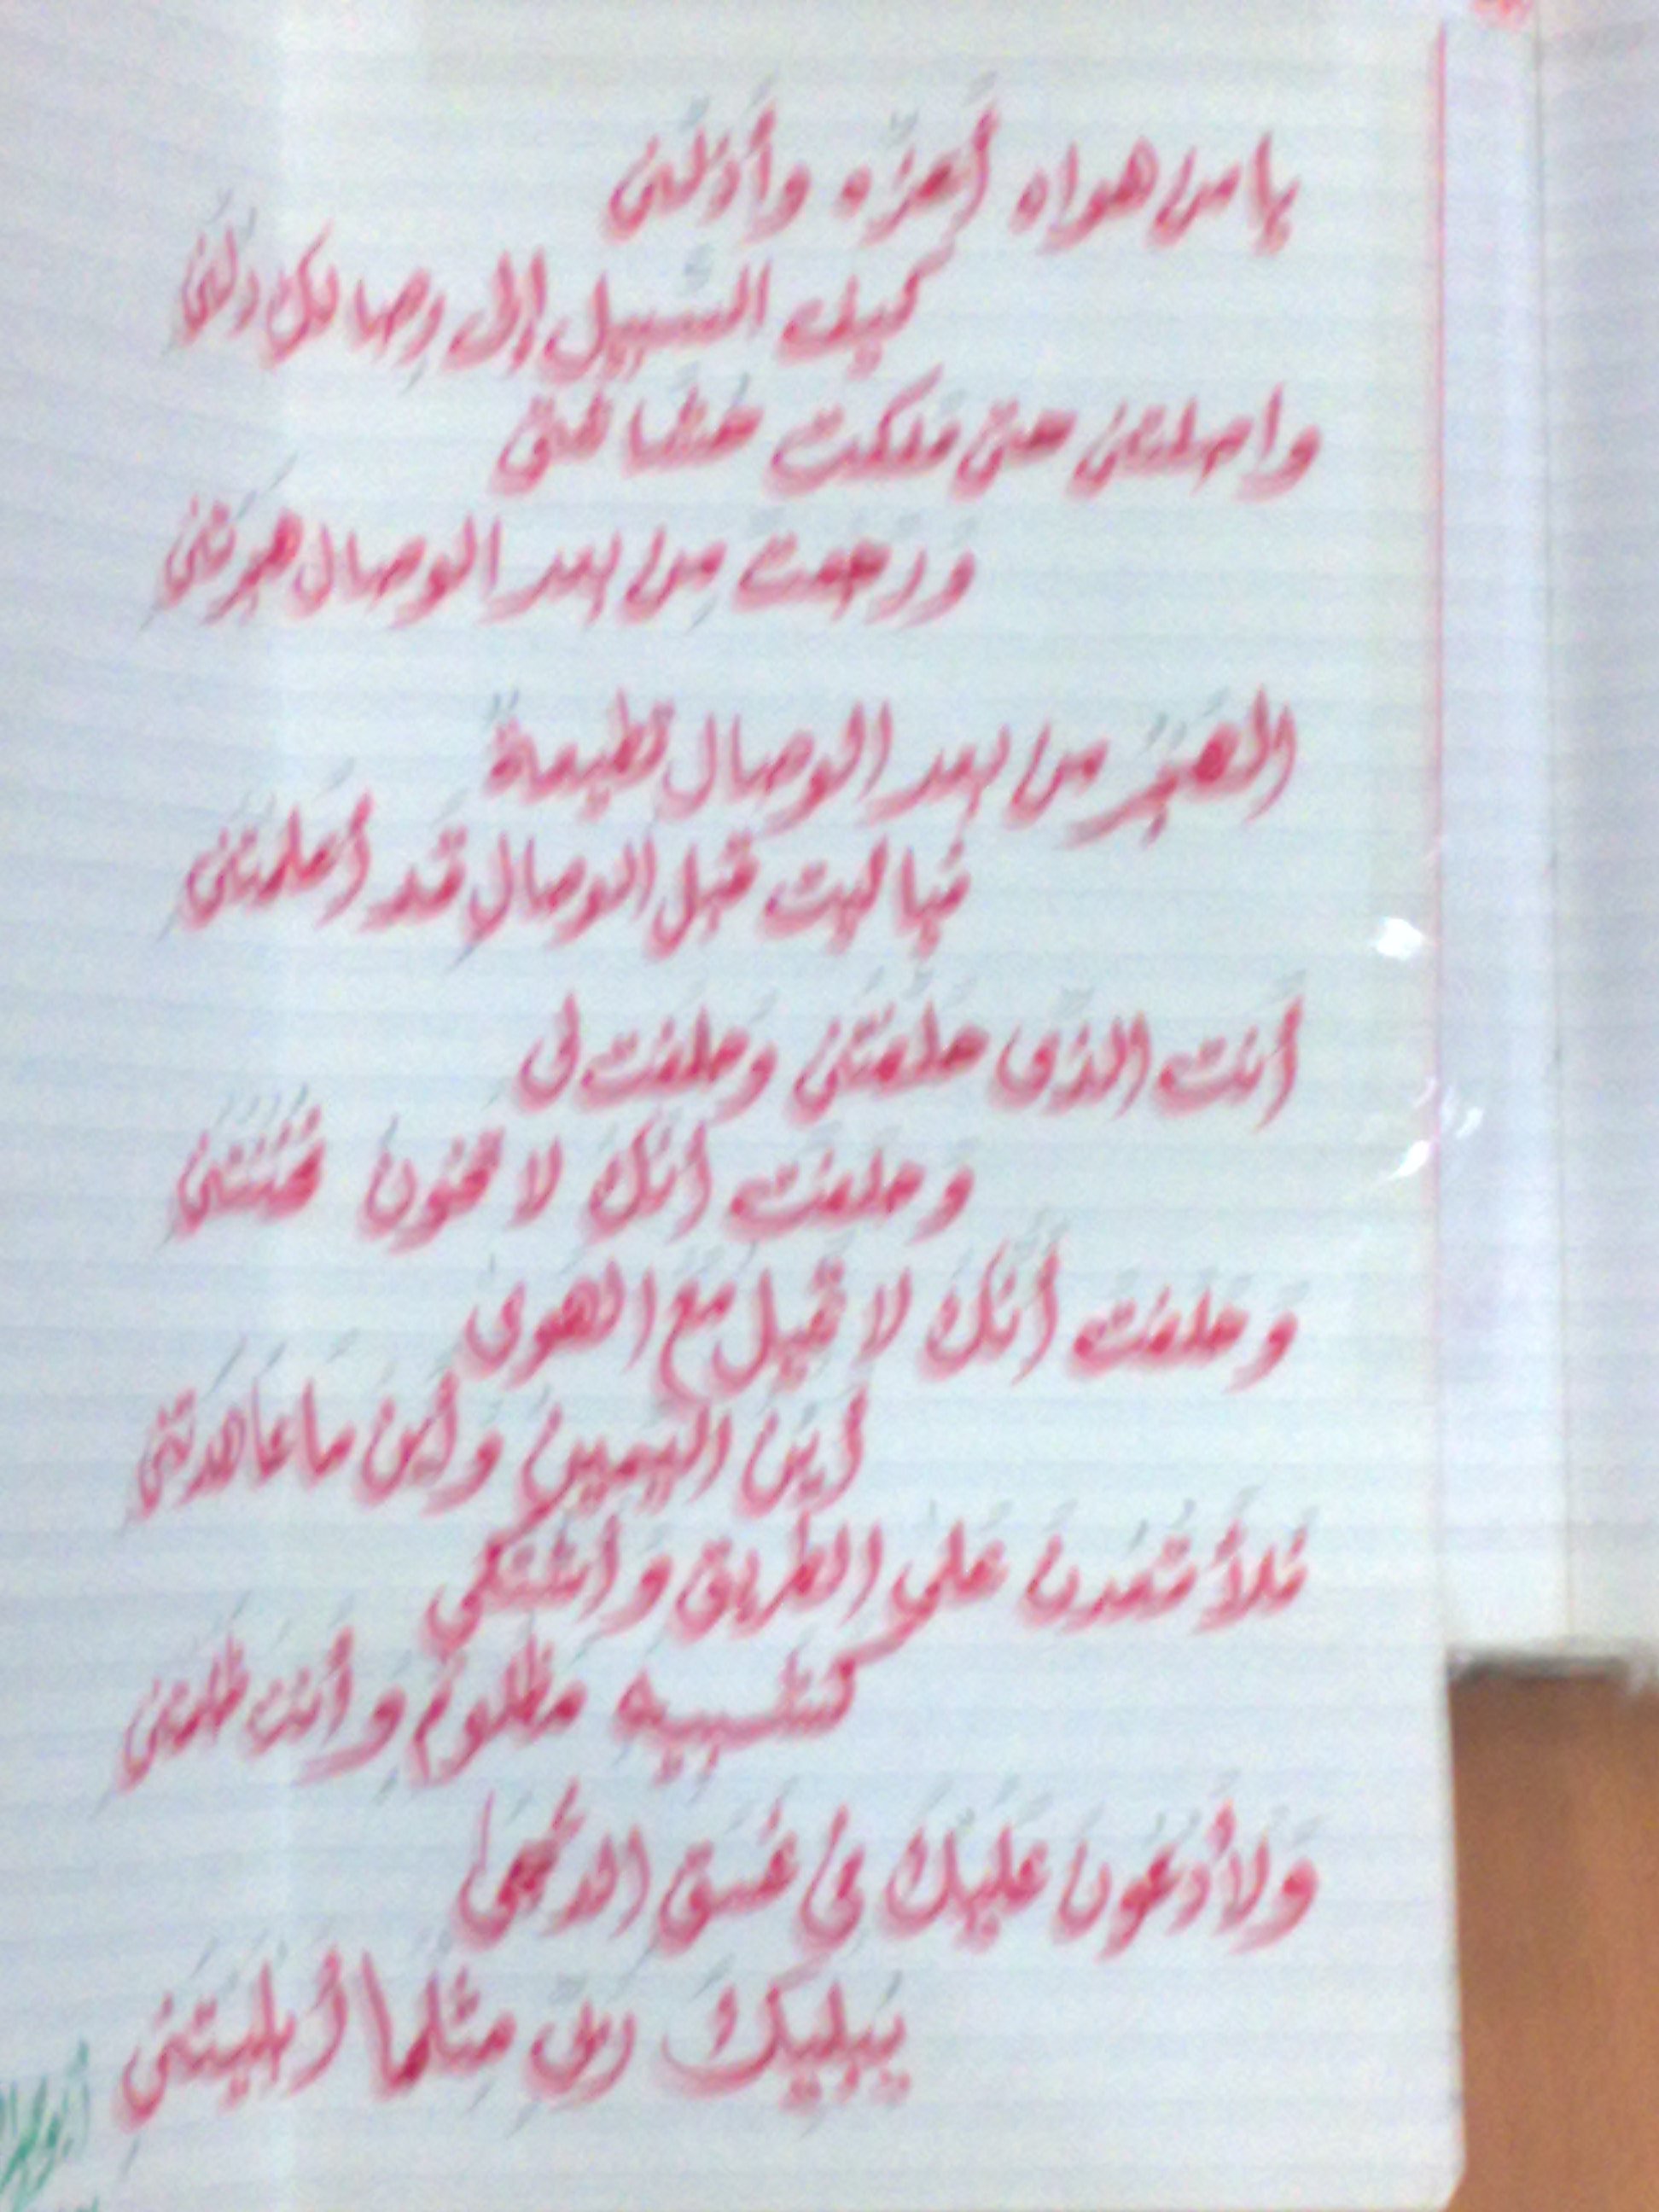 يا من هواه أعزّه وأذلّني
كيف السّبيل إلى وصالك دلّني
واصلتني حتى ملكت حشاشتي
ورجعت من بعد الوصال هجرتني
الهجر من بعد الوصال قطيعة
فياليت قبل الوصال قد أعلمتني
أنت الذّي حلّفتني وحلفت لي
وحلفت أنّك لا تخون فخنتني
وحلفت أنّك لا تميل مع الهوى
أين اليمين وأين ما عاهدتني
فلأقعدن على الطريق وأشتكي
كشبيه مظلوم وأنت ظلمتني
ولأدعون عليك في غسق الدجى
يبليك ربي مثلما أبليتني